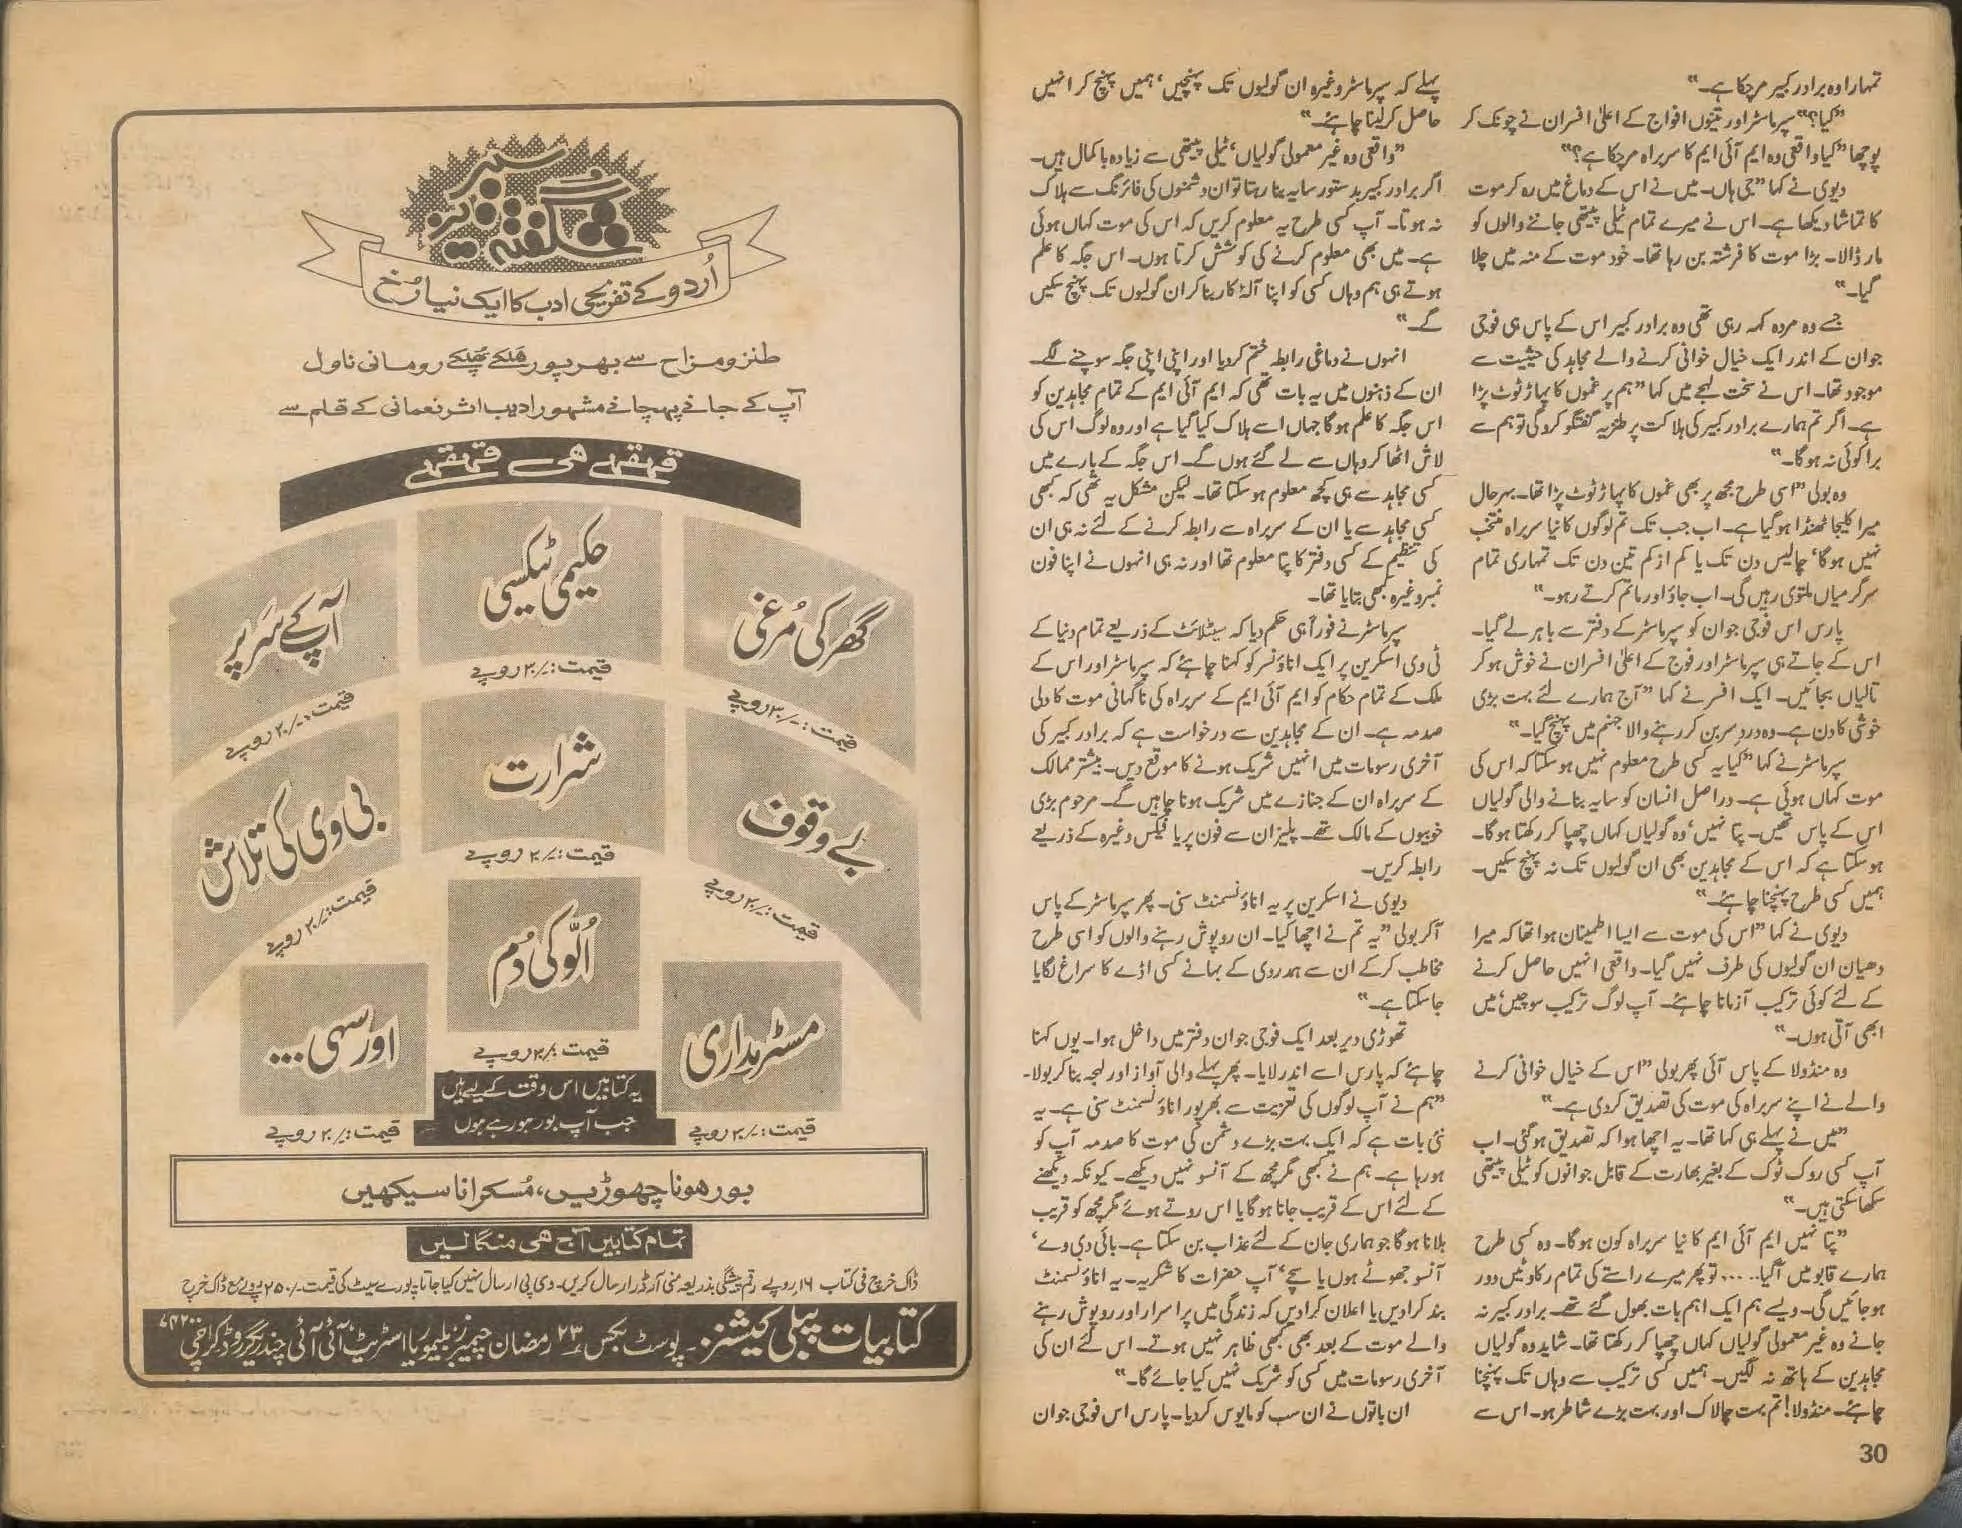 تمہارا وہ برادر کبیر مرچکا ہے۔"
"کیا؟" سپر ماسٹر اور تینوں افواج کے اعلیٰ افسران نے چونک کر
پوچھا "کیا واقعی وہ ایم آئی ایم کا سربراہ مرچکا ہے؟"
دیوی نے کہا "جی ہاں۔ میں نے اس کے دماغ میں رہ کر موت
کا تماشا دیکھا ہے۔ اس نے میرے تمام ٹیلی پیتھی جاننے والوں کو
مار ڈالا۔ بڑا موت کا فرشتہ بن رہا تھا۔ خود موت کے منہ میں چلا
گیا۔"
جسے وہ مردہ کہہ رہی تھی وہ برادر کبیر اس کے پاس ہی فوجی
جوان کے اندر ایک خیال خوانی کرنے والے مجاہد کی حیثیت سے
موجود تھا۔ اس نے سخت لہجے میں کہا "ہم پر غموں کا پہاڑ ٹوٹ پڑا
ہے۔ اگر تم ہمارے برادر کبیر کی ہلاکت پر طنزیہ گفتگو کرو گی تو ہم سے
برا کوئی نہ ہوگا۔"
وہ بولی "اسی طرح مجھ پر بھی غموں کا پہاڑ ٹوٹ پڑا تھا۔ بہرحال
میرا کلیجا ٹھنڈا ہوگیا ہے۔ اب جب تک تم لوگوں کا نیا سربراہ منتخب
نہیں ہوگا' چالیس دن تک یا کم از کم تین دن تک تمہاری تمام
سرگرمیاں ملتوی رہیں گی۔ اب جاؤ اور ماتم کرتے رہو۔"
پارس اس فوجی جوان کو سپر ماسٹر کے دفتر سے باہر لے گیا۔
اس کے جاتے ہی سپر ماسٹر اور فوج کے اعلیٰ افسران نے خوش ہو کر
تالیاں بجائیں۔ ایک افسر نے کہا "آج ہمارے لئے بہت بڑی
خوشی کا دن ہے۔ وہ دردِ سر بن کر رہنے والا جہنم میں پہنچ گیا۔"
سپر ماسٹر نے کہا "کیا یہ کسی طرح معلوم نہیں ہوسکتا کہ اس کی
موت کہاں ہوئی ہے۔ دراصل انسان کو سایہ بنانے والی گولیاں
اس کے پاس تھیں۔ پتا نہیں' وہ گولیاں کہاں چھپا کر رکھتا ہوگا۔
ہوسکتا ہے کہ اس کے مجاہدین بھی ان گولیوں تک نہ پہنچ سکیں۔
ہمیں کسی طرح پہنچنا چاہئے۔"
دیوی نے کہا "اس کی موت سے ایسا اطمینان ہوا تھا کہ میرا
دھیان ان گولیوں کی طرف نہیں گیا۔ واقعی انہیں حاصل کرنے
کے لئے کوئی ترکیب آزمانا چاہئے۔ آپ لوگ ترکیب سوچیں' میں
ابھی آتی ہوں۔"
وہ منڈولا کے پاس آئی پھر بولی "اس کے خیال خوانی کرنے
والے نے اپنے سربراہ کی موت کی تصدیق کردی ہے۔"
"میں نے پہلے ہی کہا تھا۔ یہ اچھا ہوا کہ تصدیق ہوگئی۔ اب
آپ کسی روک ٹوک کے بغیر بھارت کے قابل جوانوں کو ٹیلی پیتھی
سکھا سکتی ہیں۔"
"پتا نہیں ایم آئی ایم کا نیا سربراہ کون ہوگا۔ وہ کسی طرح
ہمارے قابو میں آگیا..... تو پھر میرے راستے کی تمام رکاوٹیں دور
ہوجائیں گی۔ ویسے ہم ایک اہم بات بھول گئے تھے۔ برادر کبیر نہ
جانے وہ غیر معمولی گولیاں کہاں چھپا کر رکھتا تھا۔ شاید وہ گولیاں
مجاہدین کے ہاتھ نہ لگیں۔ ہمیں کسی ترکیب سے وہاں تک پہنچنا
چاہئے۔ منڈولا! تم بہت چالاک اور بہت بڑے شاطر ہو۔ اس سے
30
پہلے کہ سپر ماسٹر وغیرہ ان گولیوں تک پہنچیں' ہمیں پہنچ کر انہیں
حاصل کرلینا چاہئے۔"
"واقعی وہ غیر معمولی گولیاں' ٹیلی پیتھی سے زیادہ باکمال ہیں۔
اگر برادر کبیر بدستور سایہ بنا رہتا تو ان دشمنوں کی فائرنگ سے ہلاک
نہ ہوتا۔ آپ کسی طرح یہ معلوم کریں کہ اس کی موت کہاں ہوئی
ہے۔ میں بھی معلوم کرنے کی کوشش کرتا ہوں۔ اس جگہ کا علم
ہوتے ہی ہم وہاں کسی کو اپنا آلۂ کار بنا کر ان گولیوں تک پہنچ سکیں
گے۔"
انہوں نے دماغی رابطہ ختم کردیا اور اپنی اپنی جگہ سوچنے لگے۔
ان کے ذہنوں میں یہ بات تھی کہ ایم آئی ایم کے تمام مجاہدین کو
اس جگہ کا علم ہوگا جہاں اسے ہلاک کیا گیا ہے اور وہ لوگ اس کی
لاش اٹھا کر وہاں سے لے گئے ہوں گے۔ اس جگہ کے بارے میں
کسی مجاہد سے ہی کچھ معلوم ہوسکتا تھا۔ لیکن مشکل یہ تھی کہ کبھی
کسی مجاہد سے یا ان کے سربراہ سے رابطہ کرنے کے لئے نہ ہی ان
کی تنظیم کے کسی دفتر کا پتا معلوم تھا اور نہ ہی انہوں نے اپنا فون
نمبر وغیرہ کبھی بتایا تھا۔
سپر ماسٹر نے فوراً ہی حکم دیا کہ سیٹلائٹ کے ذریعے تمام دنیا کے
ٹی وی اسکرین پر ایک اناؤنسر کو کہنا چاہئے کہ سپر ماسٹر اور اس کے
ملک کے تمام حکام کو ایم آئی ایم کے سربراہ کی ناگہانی موت کا دلی
صدمہ ہے۔ ان کے مجاہدین سے درخواست ہے کہ برادر کبیر کی
آخری رسومات میں انہیں شریک ہونے کا موقع دیں۔ بیشتر ممالک
کے سربراہ ان کے جنازے میں شریک ہونا چاہیں گے۔ مرحوم بڑی
خوبیوں کے مالک تھے۔ پلیز ان سے فون پر یا فیکس وغیرہ کے ذریعے
رابطہ کریں۔
دیوی نے اسکرین پر یہ اناؤنسمنٹ سنی۔ پھر سپر ماسٹر کے پاس
آکر بولی "یہ تم نے اچھا کیا۔ ان روپوش رہنے والوں کو اسی طرح
مخاطب کرکے ان سے ہمدردی کے بہانے کسی اڈے کا سراغ لگایا
جاسکتا ہے۔"
تھوڑی دیر بعد ایک فوجی جوان دفتر میں داخل ہوا۔ یوں کہنا
چاہئے کہ پارس اسے اندر لایا۔ پھر پہلے والی آواز اور لہجہ بنا کر بولا۔
"ہم نے آپ لوگوں کی تعزیت سے بھرپور اناؤنسمنٹ سنی ہے۔ یہ
نئی بات ہے کہ ایک بہت بڑے دشمن کی موت کا صدمہ آپ کو
ہورہا ہے۔ ہم نے کبھی مگرمچھ کے آنسو نہیں دیکھے۔ کیونکہ دیکھنے
کے لئے اس کے قریب جانا ہوگا یا اس روتے ہوئے مگرمچھ کو قریب
بلانا ہوگا جو ہماری جان کے لئے عذاب بن سکتا ہے۔ بائی دی وے'
آنسو جھوٹے ہوں یا سچے' آپ حضرات کا شکریہ۔ یہ اناؤنسمنٹ
بند کرادیں یا اعلان کرادیں کہ زندگی میں پراسرار اور روپوش رہنے
والے موت کے بعد بھی کبھی ظاہر نہیں ہوتے۔ اس لئے ان کی
آخری رسومات میں کسی کو شریک نہیں کیا جائے گا۔"
ان باتوں نے ان سب کو مایوس کردیا۔ پارس اس فوجی جوان
شگفتہ سیریز
اُردو کے تفریحی ادب کا ایک نیا رُخ
طنز و مزاح سے بھرپور ہلکے پھلکے رومانی ناول
آپ کے جانے پہچانے مشہور ادیب اثر نعمانی کے قلم سے
قہقہے ھی قہقہے
گھر کی مُرغی
قیمت:۔/۲۰ روپے
حکیمی ٹیکسی
قیمت:۔/۲۰ روپے
آپ کے سَر پر
قیمت:۔/۲۰ روپے
بے وقوف
قیمت:۔/۲۰ روپے
شرارت
قیمت:۔/۲۰ روپے
بی وی کی تلاش
قیمت:۔/۲۰ روپے
مسٹر مداری
قیمت:۔/۲۰ روپے
اُلّو کی دُم
قیمت:۔/۲۰ روپے
اور سہی...
قیمت:۔/۲۰ روپے
یہ کتابیں اس وقت کے لیے ہیں
جب آپ بور ہو رہے ہوں
بور ھونا چھوڑیں، مُسکرانا سیکھیں
تمام کتابیں آج ھی منگا لیں
ڈاک خرچ فی کتاب ۱۶ روپے رقم پیشگی بذریعہ منی آرڈر ارسال کریں۔ وی پی ارسال نہیں کیا جاتا پورے سیٹ کی قیمت۔/۲۵۰ روپے مع ڈاک خرچ
کتابیات پبلی کیشنز۔ پوسٹ بکس ۲۳ رمضان چیمبرز بلیموریا اسٹریٹ' آئی آئی چندریگر روڈ کراچی ۷۴۲۰۰